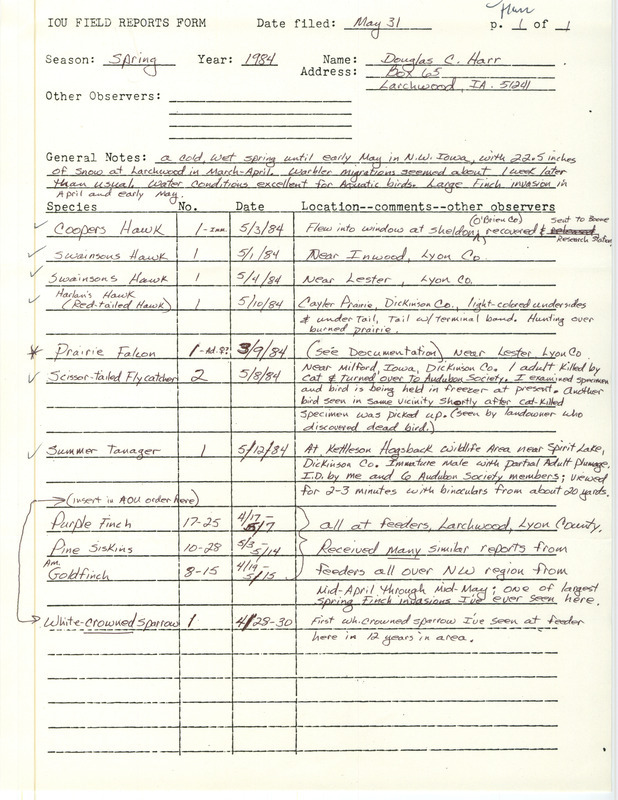 Harr
IOU FIELD REPORTS FORM Date filed: May 31 p. 1 of 1
Season: Spring Year: 1984 Name: Douglas C. Harr
Address: Box 65
Larchwood, IA. 51241
Other Observers:
General Notes: a cold, wet spring until early May in N.W. Iowa, with 22.5 inches
of snow at Larchwood in March-April. Warbler migrations seemed about 1 week later
than usual. Water conditions excellent for Aquatic birds. Large Finch invasion in
April and early May.
Species No. Date Location--comments--other observers
Coopers Hawk 1-Imm. 5/3/84 Flew into window at Sheldon, (O'Brien Co) recovered & released sent to Boone Research Station
Swainsons Hawk 1 5/1/84 Near Inwood, Lyon Co.
Swainsons Hawk 1 5/4/84 Near Lester, Lyon Co.
Harlan's Hawk
(Red-tailed Hawk) 1 5/10/84 Cayler Prairie, Dickinson Co., light-colored undersides
& under tail, Tail w/terminal band. Hunting over
burned prairie.
* Prairie Falcon 1-Ad.♀? 3/9/84 (see Documentation) Near Lester, Lyon Co.
Scissor-tailed Flycatcher 2 5/8/84 Near Milford, Iowa, Dickinson Co. 1 adult killed by
cat & turned over to Audubon Society. I examined specimen
and bird is being held in freezer at present. Another
bird seen in same vicinity shortly after cat-killed
specimen was picked up. (seen by landowner who
discovered dead bird.)
Summer Tanager 1 5/12/84 At Kettleson Hogsback Wildlife Area near Spirit Lake,
Dickinson Co. Immature male with partial Adult plumage,
I.D. by me and 6 Audubon Society members; viewed
for 2-3 minutes with binoculars from about 20 yards.
(insert in AOU order here)
Purple Finch 17-25 4/17-5/7 all at feeders, Larchwood, Lyon County.
Pine Siskins 10-28 5/3-5/14 Received many similar reports from
Am. Goldfinch 8-15 4/19-5/15 feeders all over NW region from
Mid-April through Mid-May; one of largest
Spring Finch invasions I've ever seen here.
White-crowned Sparrow 1 4/28-30 First wh.crowned sparrow I've seen at feeder
here in 12 years in area.